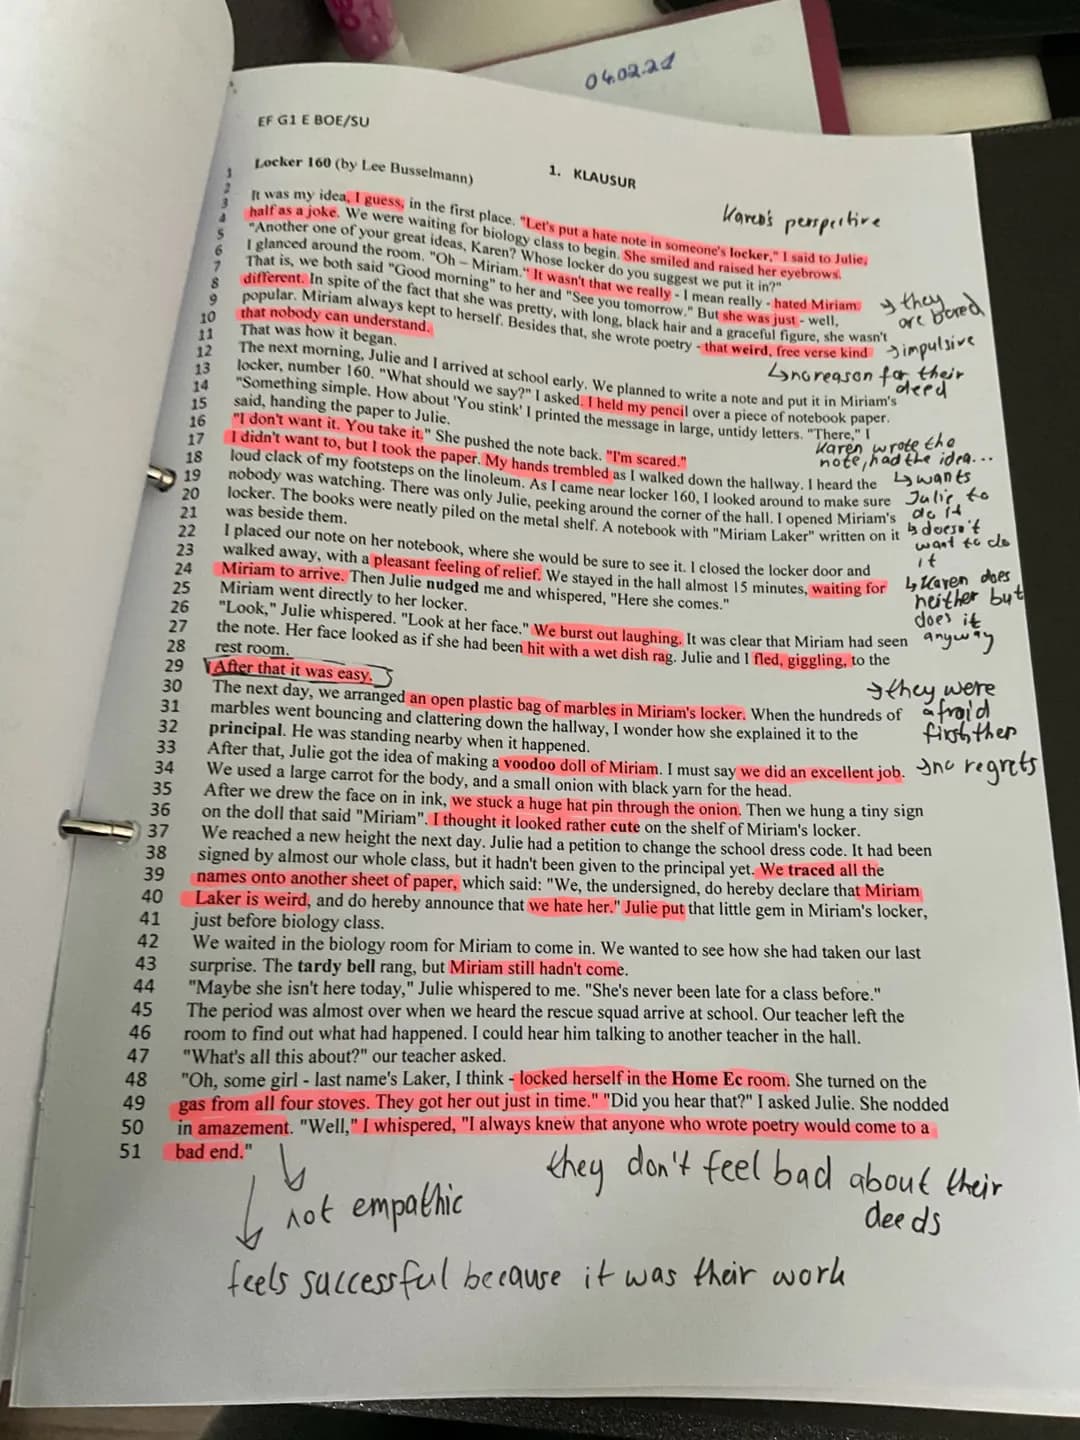 04.02.21
EF G1 E BOE/SU
Locker 160 (by Lee Busselmann)
1. KLAUSUR
Karen's perspective
1
2 It was my idea, I guess, in the first place. "Let's put a hate note in someone's locker," I said to Julie,
3 half as a joke. We were waiting for biology class to begin. She smiled and raised her eyebrows.
4 "Another one of your great ideas, Karen? Whose locker do you suggest we put it in?"
5 I glanced around the room. "Oh – Miriam." It wasn't that we really - I mean really - hated Miriam
6 That is, we both said "Good morning" to her and "See you tomorrow." But she was just - well,
7 different. In spite of the fact that she was pretty, with long, black hair and a graceful figure, she wasn't
8 popular. Miriam always kept to herself. Besides that, she wrote poetry - that weird, free verse kind
9 that nobody can understand.
10 That was how it began.
11 The next morning, Julie and I arrived at school early. We planned to write a note and put it in Miriam's
12 locker, number 160. "What should we say?" I asked. I held my pencil over a piece of notebook paper.
13 "Something simple. How about 'You stink' I printed the message in large, untidy letters. "There," I
14 said, handing the paper to Julie.
15 "I don't want it. You take it." She pushed the note back. "I'm scared."
16 I didn't want to, but I took the paper. My hands trembled as I walked down the hallway. I heard the
17 loud clack of my footsteps on the linoleum. As I came near locker 160, I looked around to make sure
18 nobody was watching. There was only Julie, peeking around the corner of the hall. I opened Miriam's
19 locker. The books were neatly piled on the metal shelf. A notebook with "Miriam Laker" written on it
20 was beside them.
21 I placed our note on her notebook, where she would be sure to see it. I closed the locker door and
22 walked away, with a pleasant feeling of relief. We stayed in the hall almost 15 minutes, waiting for
23 Miriam to arrive. Then Julie nudged me and whispered, "Here she comes."
24 Miriam went directly to her locker.
25 "Look," Julie whispered. "Look at her face." We burst out laughing. It was clear that Miriam had seen
26 the note. Her face looked as if she had been hit with a wet dish rag. Julie and I fled, giggling, to the
27 rest room.
28 After that it was easy.
29 The next day, we arranged an open plastic bag of marbles in Miriam's locker. When the hundreds of
30 marbles went bouncing and clattering down the hallway, I wonder how she explained it to the
31 principal. He was standing nearby when it happened.
32 After that, Julie got the idea of making a voodoo doll of Miriam. I must say we did an excellent job.
33 We used a large carrot for the body, and a small onion with black yarn for the head.
34 After we drew the face on in ink, we stuck a huge hat pin through the onion. Then we hung a tiny sign
35 on the doll that said "Miriam". I thought it looked rather cute on the shelf of Miriam's locker.
36 We reached a new height the next day. Julie had a petition to change the school dress code. It had been
37 signed by almost our whole class, but it hadn't been given to the principal yet. We traced all the
38 names onto another sheet of paper, which said: "We, the undersigned, do hereby declare that Miriam
39 Laker is weird, and do hereby announce that we hate her." Julie put that little gem in Miriam's locker,
40 just before biology class.
41 We waited in the biology room for Miriam to come in. We wanted to see how she had taken our last
42 surprise. The tardy bell rang, but Miriam still hadn't come.
43 "Maybe she isn't here today," Julie whispered to me. "She's never been late for a class before."
44 The period was almost over when we heard the rescue squad arrive at school. Our teacher left the
45 room to find out what had happened. I could hear him talking to another teacher in the hall.
46 "What's all this about?" our teacher asked.
47 "Oh, some girl - last name's Laker, I think - locked herself in the Home Ec room. She turned on the
48 gas from all four stoves. They got her out just in time." "Did you hear that?" I asked Julie. She nodded
49 in amazement. "Well," I whispered, "I always knew that anyone who wrote poetry would come to a
50 bad end."
51
→ they
are bored
→ impulsive
↳ no reason for their
deed
Karen wrote the
note, had the idea...
↳ wants
Julie to
do it
↳ doesn't
want to do
it
↳ Karen does
neither but
does it
anyway
→ they were
afraid
first, then
→ no regrets
not empathic
they don't feel bad about their
deeds
feels successful because it was their work